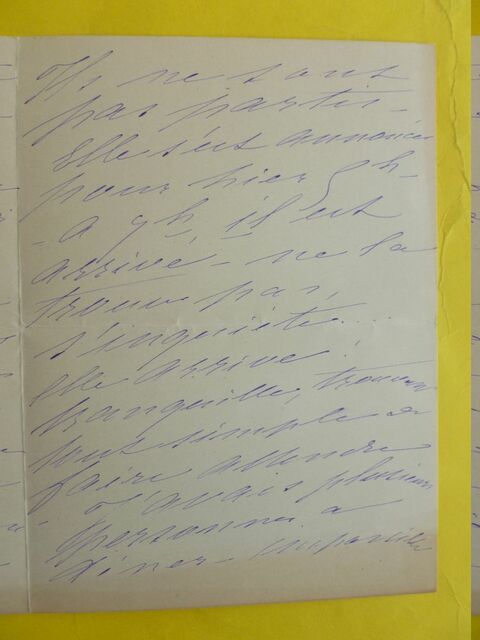 Ils ne sont
pas partis -
Elle s'est annoncée
pour hier 5 h -
- a 9 h il est
arrivé - ne la
trouve pas,
s'inquiète...
elle arrive !
tranquille, trouvant
tout simple de
faire attendre
J'avais plusieurs
personnes a
diner -